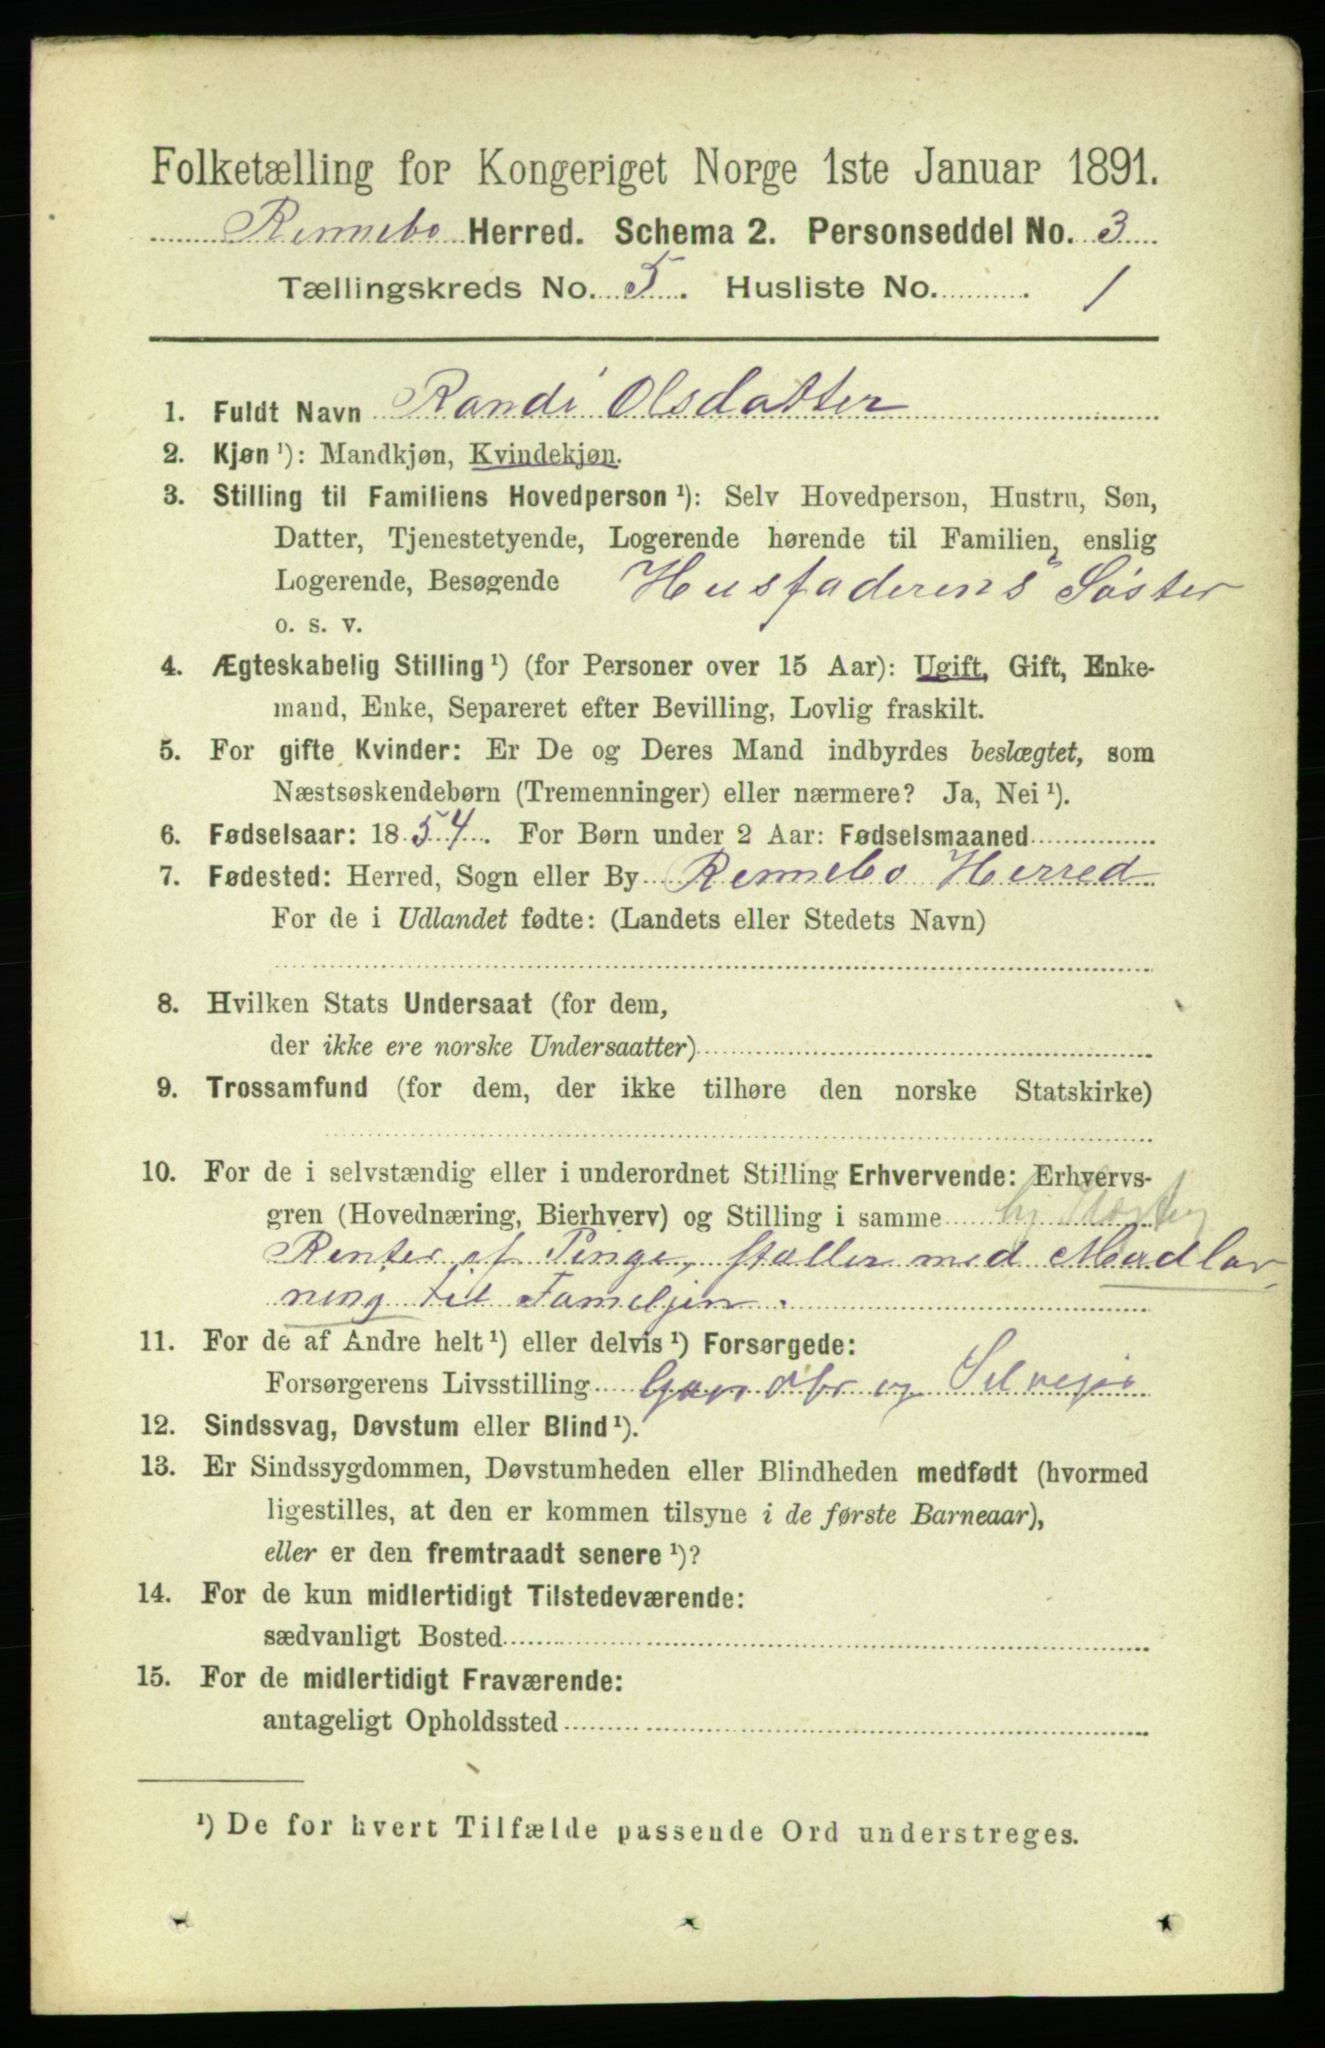 Folketælling for Kongeriget Norge 1ste Januar 1891.
Rennebo Herred. Schema 2. Personseddel No. 3
Tællingskreds No. 5. Husliste No. 1
1. Fuldt Navn Randi Olsdatter
2. Kjøn ¹): Mandkjøn, Kvindekjøn.
3. Stilling til Familiens Hovedperson ¹): Selv Hovedperson, Hustru, Søn,
Datter, Tjenestetyende, Logerende hørende til Familien, enslig
Logerende, Besøgende Husfaderens Søster
o. s. v.
4. Ægteskabelig Stilling ¹) (for Personer over 15 Aar): Ugift, Gift, Enke-
mand, Enke, Separeret efter Bevilling, Lovlig fraskilt.
5. For gifte Kvinder: Er De og Deres Mand indbyrdes beslægtet, som
Næstsøskendebørn (Tremenninger) eller nærmere? Ja, Nei ¹).
6. Fødselsaar: 1854. For Børn under 2 Aar: Fødselsmaaned
7. Fødested: Herred, Sogn eller By Rennebo Herred
For de i Udlandet fødte: (Landets eller Stedets Navn)
8. Hvilken Stats Undersaat (for dem,
der ikke ere norske Undersaatter)
9. Trossamfund (for dem, der ikke tilhøre den norske Statskirke)
10. For de i selvstændig eller i underordnet Stilling Erhvervende: Erhvervs-
gren (Hovednæring, Bierhverv) og Stilling i samme
Renter af Penge, staller med Madlav
ning til Fameljen.
11. For de af Andre helt ¹) eller delvis ¹) Forsørgede:
Forsørgerens Livsstilling Gaardbr og Selvejer
12. Sindssvag, Døvstum eller Blind ¹).
13. Er Sindssygdommen, Døvstumheden eller Blindheden medfødt (hvormed
ligestilles, at den er kommen tilsyne i de første Barneaar),
eller er den fremtraadt senere ¹)?
14. For de kun midlertidigt Tilstedeværende:
sædvanligt Bosted
15. For de midlertidigt Fraværende:
antageligt Opholdssted
¹) De for hvert Tilfælde passende Ord understreges.